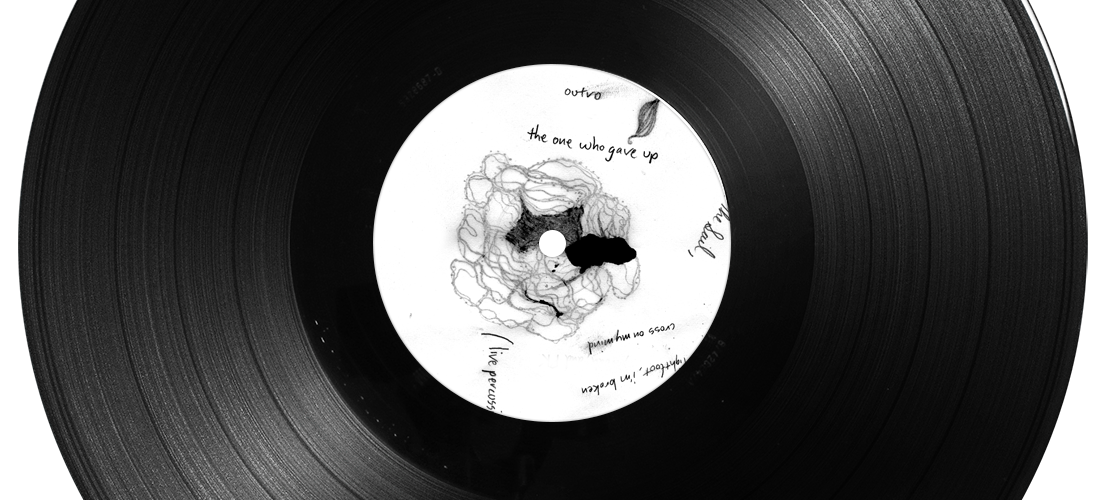 outro
the one who gave up
the
cross on my mind
ightfoot, i'm broken
(live percuss